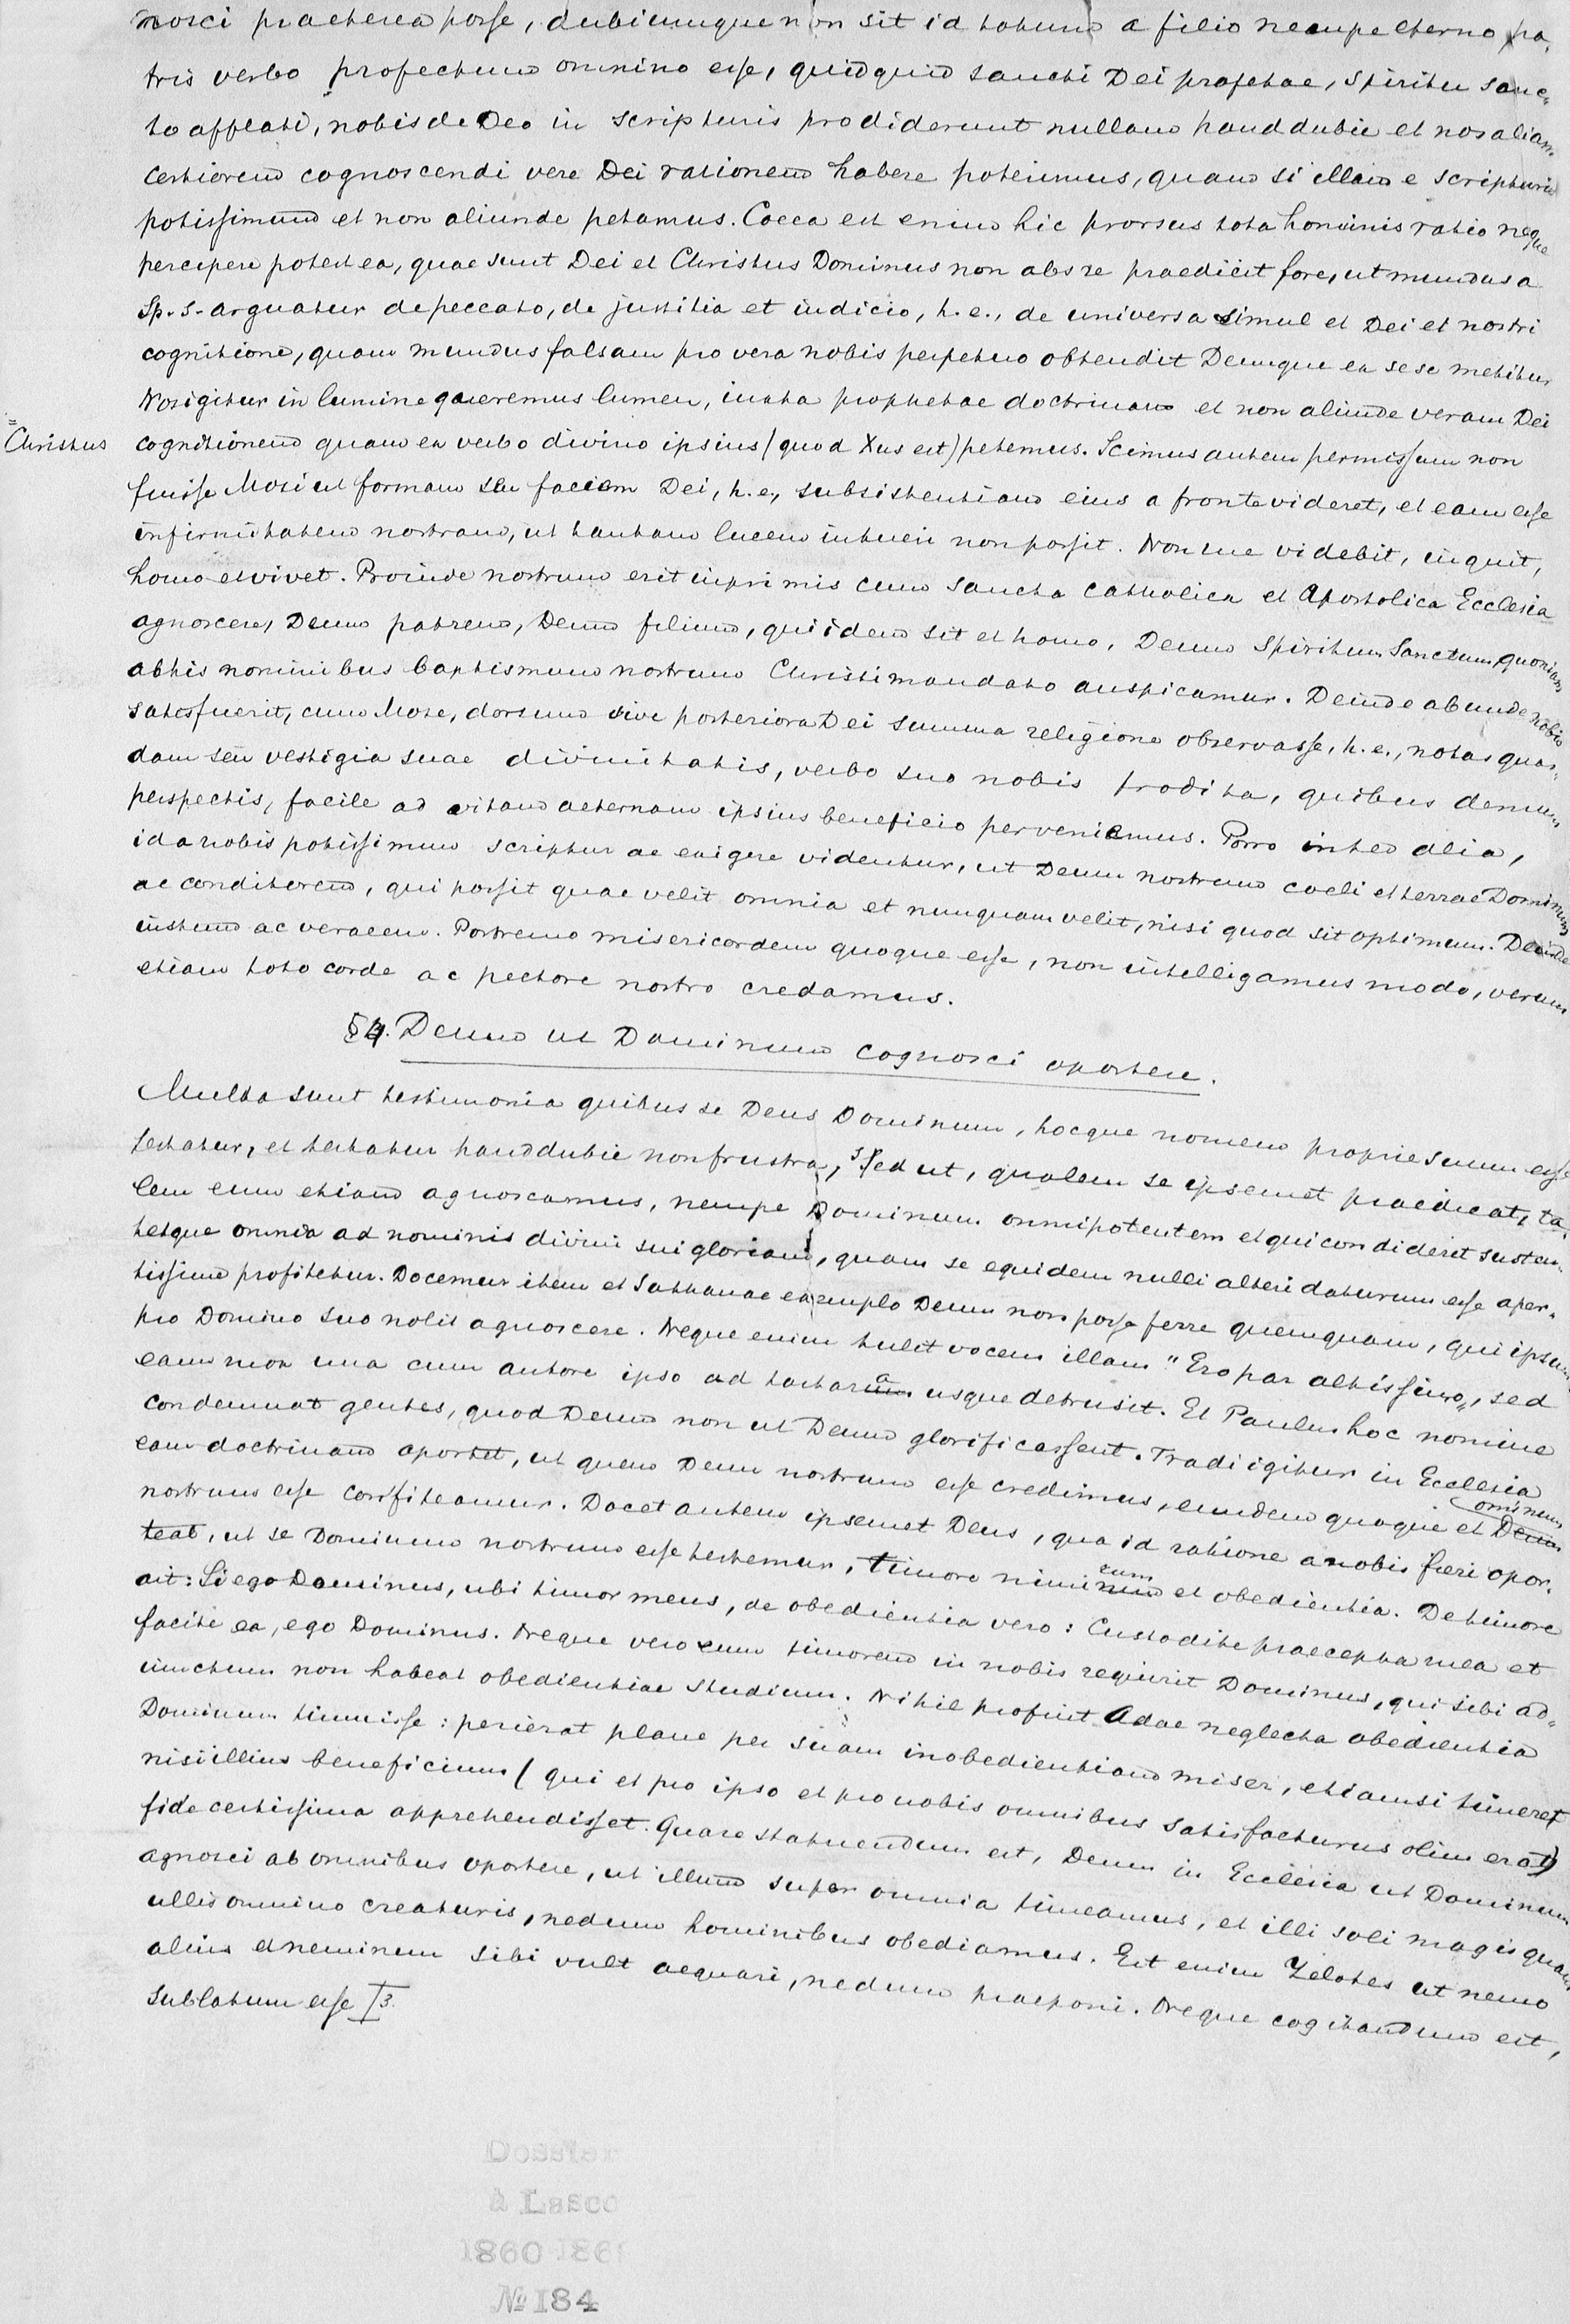 nosci praeterea posse, dubiumque non sit id totum a filio nempe eterno pa-
tris verbo profectum omnino esse, quidquid sancti Dei prophetae, Spiritu sanc-
to afflati, nobis de Deo in scripturis prodiderunt nullam haud dubie et nos aliam
certiorem cognoscendi vere Dei rationem habere poterimus, quam si illam e scripturis
potissimum et non aliunde petamus. Coeca est enim hic prorsus tota hominis ratio neque
percipere potest ea, quae sunt Dei et Christus Dominus non abs re praedicit fore, ut mundus a
Sp. S. arguatur de peccato, de justitia et iudicio, h. e., de universa simul et Dei et nostri
cognitione, quam mundus falsam pro vera nobis perpetuo obtendit Deumque ex sese metitur
Nos igitur in lumine quaeremus lumen, iuxta prophetae doctrinam et non aliunde veram Dei
= Christus
cognitionem quam ex verbo divino ipsius (quod Xus est) petemus. Scimus autem permissum non
fuisse Mosi ut formam seu faciem Dei, h. e., subsistentiam eius a fronte videret, et eam esse
infirmitatem nostram, ut tantam lucem intueri non possit. Non me videbit, inquit,
homo et vivet. Proinde nostrum erit inprimis cum sancta catholica et Apostolica Ecclesia
agnoscere, Deum patrem, Deum filium, qui idem sit et homo, Deum Spiritum Sanctum, quoniam
ab his nominibus baptismum nostrum Christi mandato auspicamur. Deinde abunde nobis
satis fuerit, cum Mose, dorsum sive posteriora Dei summa religione observasse, h. e., notas quas-
dam seu vestigia suae divinitatis, verbo suo nobis prodita, quibus demum
perspectis, facile ad vitam aeternam ipsius beneficio perveniemus. Porro inter alia,
id a nobis potissimum scriptur ae exigere videntur, ut Deum nostrum coeli et terrae Dominum
ac conditorem, qui possit quae velit omnia et nunquam velit, nisi quod sit optimum. Deinde
iustum ac veracem. Postremo misericordem quoque esse, non intelligamus modo, verum
etiam toto corde ac pectore nostro credamus.
§4. Deum ut Dominum cognosci oportere.
Multa sunt testimonia quibus se Deus Dominum, hocque nomen proprie suum esse
testatur, et testatur haud dubie non frustra, sed ut, qualem se ipsemet praedicat, ta-
lem eum etiam agnoscamus, nempe Dominum omnipotentem et qui condideret susten-
tetque omnia ad nominis divini sui gloriam, quam se equidem nulli alteri daturum esse aper-
tissime profitetur. Docemur item et Sathanae exemplo Deum non posse ferre quemquam, qui ipsum
pro Domino suo nolit agnoscere. Neque enim tulit vocem illam "Ero par altissimo", sed
eam mox una cum autore ipso ad tartara usque detrusit. Et Paulus hoc nomine
condemnat gentes, quod Deum non ut Deum glorificassent. Tradi igitur in Ecclesia
eam doctrinam oportet, ut quem Deum nostrum esse credimus, eundem quoque et Dominum
nostrum esse confiteamur. Docet autem ipsemet Deus, qua id ratione a nobis fieri opor-
teat, ut se Dominum nostrum esse testemur, timore nimirum et obedientia. De timore
ait: Si ego Dominus, ubi timor meus, de obedientia vero: Custodite praecepta mea et
facite ea, ego Dominus. Neque vero eum timorem in nobis requirit Dominus, qui sibi ad-
iunctum non habeat obedientiae studium. Nihil profuit Adae neglecta obedientia
Dominum timuisse: perierat plane per suam inobedientiam miser, etiamsi timeret
nisi illius beneficium (qui et pro ipso et pro nobis omnibus satisfacturus olim erat)
fide certissima apprehendisset. Quare statuendum est, Deum in Ecclesia ut Dominum
agnosci ab omnibus oportere, ut illum super omnia timeamus, et illi soli magis quam
ullis omnino creaturis, nedum hominibus obediamus. Est enim Zelotes ut nemo
alius et neminem sibi vult aequari, nedum praeponi. Neque cogitandum est,
sublatum esse I3.
Dossier
à Lasco
1860 186
№ 184